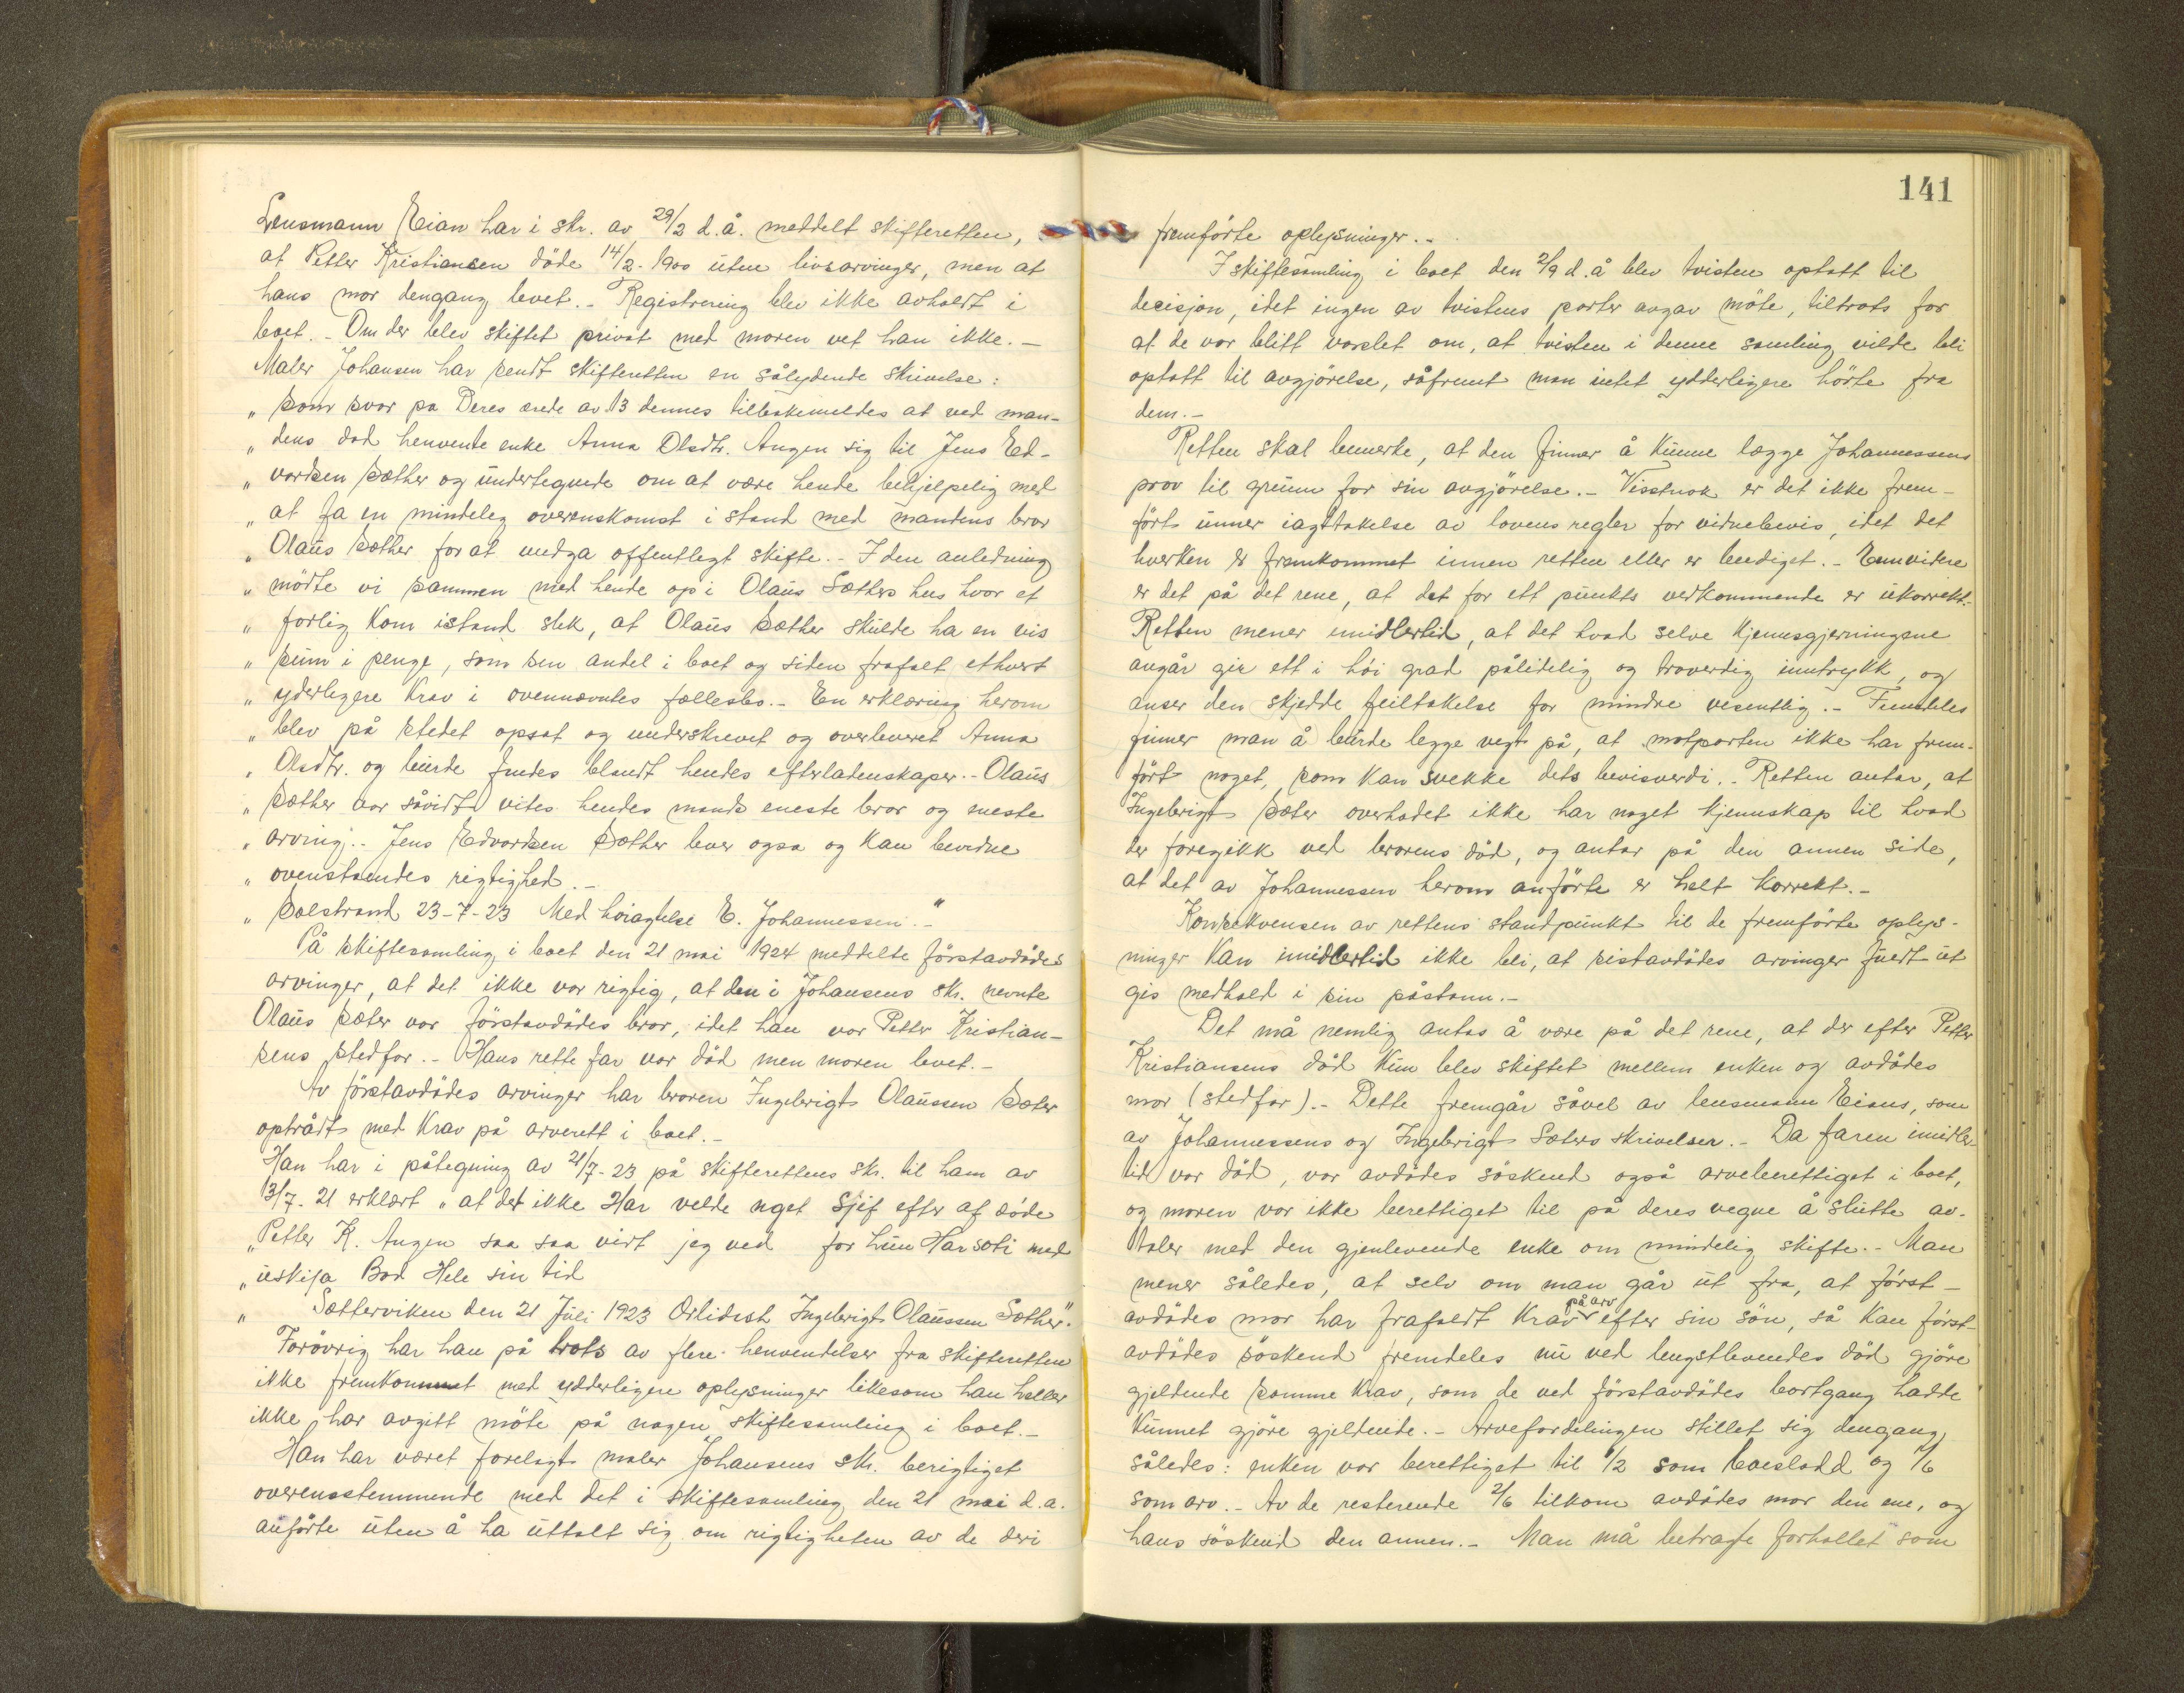 Lensmann Eian har i skr. av 29/2 d.å. meddelt skifteretten,
at Petter Kristiansen döde 14/2-1900 uten livsarvinger, men at
hans mor dengang levet.- Registrering blev ikke avholdt i
boet.- Om der blev skiftet privat med moren vet han ikke.-
Maler Johansen har sendt skifteretten en sålydende skrivelse:
" Som svar pa Deres ærede av 13 dennes tilbakemeldes at ved man-
" dens död henvente enke Anna Olsdtr. Augen sig til Jens Ed-
" vardsen Sæther og undertegnede om at være hende behjelpelig med
" at fa en mindeleg overenskomst i stand med mandens bror
" Olaus Sæther for at undga offentlegt skifte.- I den anledning
" mödte vi sammen med hende op i Olaus Sæthers hus hvor et
" forlig kom istand slik, at Olaus Sæther skulde ha en vis
" sum i penge, som sin andel i boet og siden frafalt ethvert
" yderligere krav i ovennævntes fællesbo.- En erklæring herom
" blev på stedet opsat og underskrevet og overleveret Anna
" Olsdtr. og burde findes blandt hendes efterladenskaper.- Olaus
" Sæther var såvidt vites hendes mands eneste bror og neste
" arving.- Jens Edvardsen Sæther lever ogsa og kan bevidne
" ovenstaendes rigtighed.-
" Solstrand 23-7-23 Med høiagtelse E. Johannessen.-"
På skiftesamling i boet den 21 mai 1924 meddelte förstavdödes
arvinger, at det ikke var rigtig, at den i Johansens skr. nevnte
Olaus Sæter var förstavdödes bror, idet han var Petter Kristian-
sens stedfar.- Hans rette far var död men moren levet.-
Av förstavdödes arvinger har broren Ingebrigt Olaussen Sæter
optrådt med krav på arverett i boet.-
Han har i påtegning av 21/7-23 på skifterettens skr. til ham av
13/7-21 erklært " at det ikke Har velde nget Sjif efter af døde
" Petter K. Augen saa saa virt jeg ved for hun Har soti med
" uskifa Bod Hele sin tid
" Sætterviken den 21 Juli 1923 Ørlidest Ingebrigt Olaussen Sæther".
Forövrig har han på trots av flere henvendelser fra skifteretten
ikke fremkommet med ydderligere oplysninger likesom han heller
ikke har avgitt möte på nogen skiftesamling i boet.-
Han har været forelagt maler Johansens skr. berigtiget
overensstemmende med det i skiftesamling den 21 mai d.a.
anförte uten å ha uttalt sig om rigtigheten av de deri
141
fremförte oplysninger.-
I skiftesamling i boet den 2/9 d.å blev tvisten optatt til
decisjon, idet ingen av tvistens parter avgav möte, tiltrots for
at de var blitt varslet om, at tvisten i denne samling vilde bli
optatt til avgjörelse, såfremt man intet ydderligere hörte fra
dem.-
Retten skal bemerke, at den finner å kunne lægge Johannessens
prov til grunn for sin avgjörelse.- Visstnok er det ikke frem-
fört unner iagttakelse av lovens regler for vidnebevis, idet det
hverken er fremkommet innen retten eller er beediget.- Ennvidere
er det på det rene, at det for ett punkts vedkommende er ukorrekt.-
Retten mener imidlertid, at det hvad selve kjennsgjerningene
angår gir ett i höi grad pålidelig og troverdig inntrykk, og
anser den skjedde feiltakelse for mindre vesentlig.- Fremdeles
finner man å burde legge vegt på, at motparten ikke har frem-
fört noget, som kan svekke dets bevisverdi.- Retten antar, at
Ingebrigt Sæter overhodet ikke har noget kjennskap til hvad
der foregikk ved brorens död, og antar på den annen side,
at det av Johannessen herom anförte er helt korrekt.-
Konsekvensen av rettens standpunkt til de fremförte oplys-
ninger kan imidlertid ikke bli, at sistavdödes arvinger fuldt ut
gis medhold i sin påstann.-
Det må nemlig antas å være på det rene, at der efter Petter
Kristiansens död kun blev skiftet mellem enken og avdödes
mor (stedfar).- Dette fremgår såvel av lensmann Eians, som
av Johannessens og Ingebrigt Sæters skrivelser.- Da faren imidler-
tid var död, var avdödes söskend også arveberettiget i boet,
og moren var ikke berettiget til på deres vegne å slutte av-
taler med den gjenlevende enke om mindelig skifte.- Man
mener således, at selv om man går ut fra, at först-
avdödes mor har frafaldt krav på arv efter sin sön, så kan först-
avdödes söskend fremdeles nu ved lengstlevendes död gjöre
gjeldende samme krav, som de ved förstavdödes bortgang hadde
kunnet gjöre gjeldende.- Arvefordelingen stillet sig dengang
således: enken var berettiget til 1/2 som boeslodd og 1/6
som arv.- Av de resterende 2/6 tilkom avdödes mor den ene, og
hans söskend den annen.- Man må betragte forhollet som